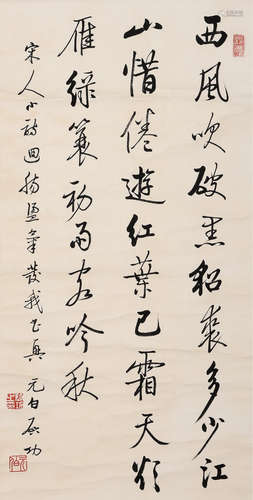 西風吹破黑貂裘多少江
山惜倦遊紅葉已霜天欲
雁綠蓑初雨客吟秋
宋人小詩回腸盪氣發我 元白啟功